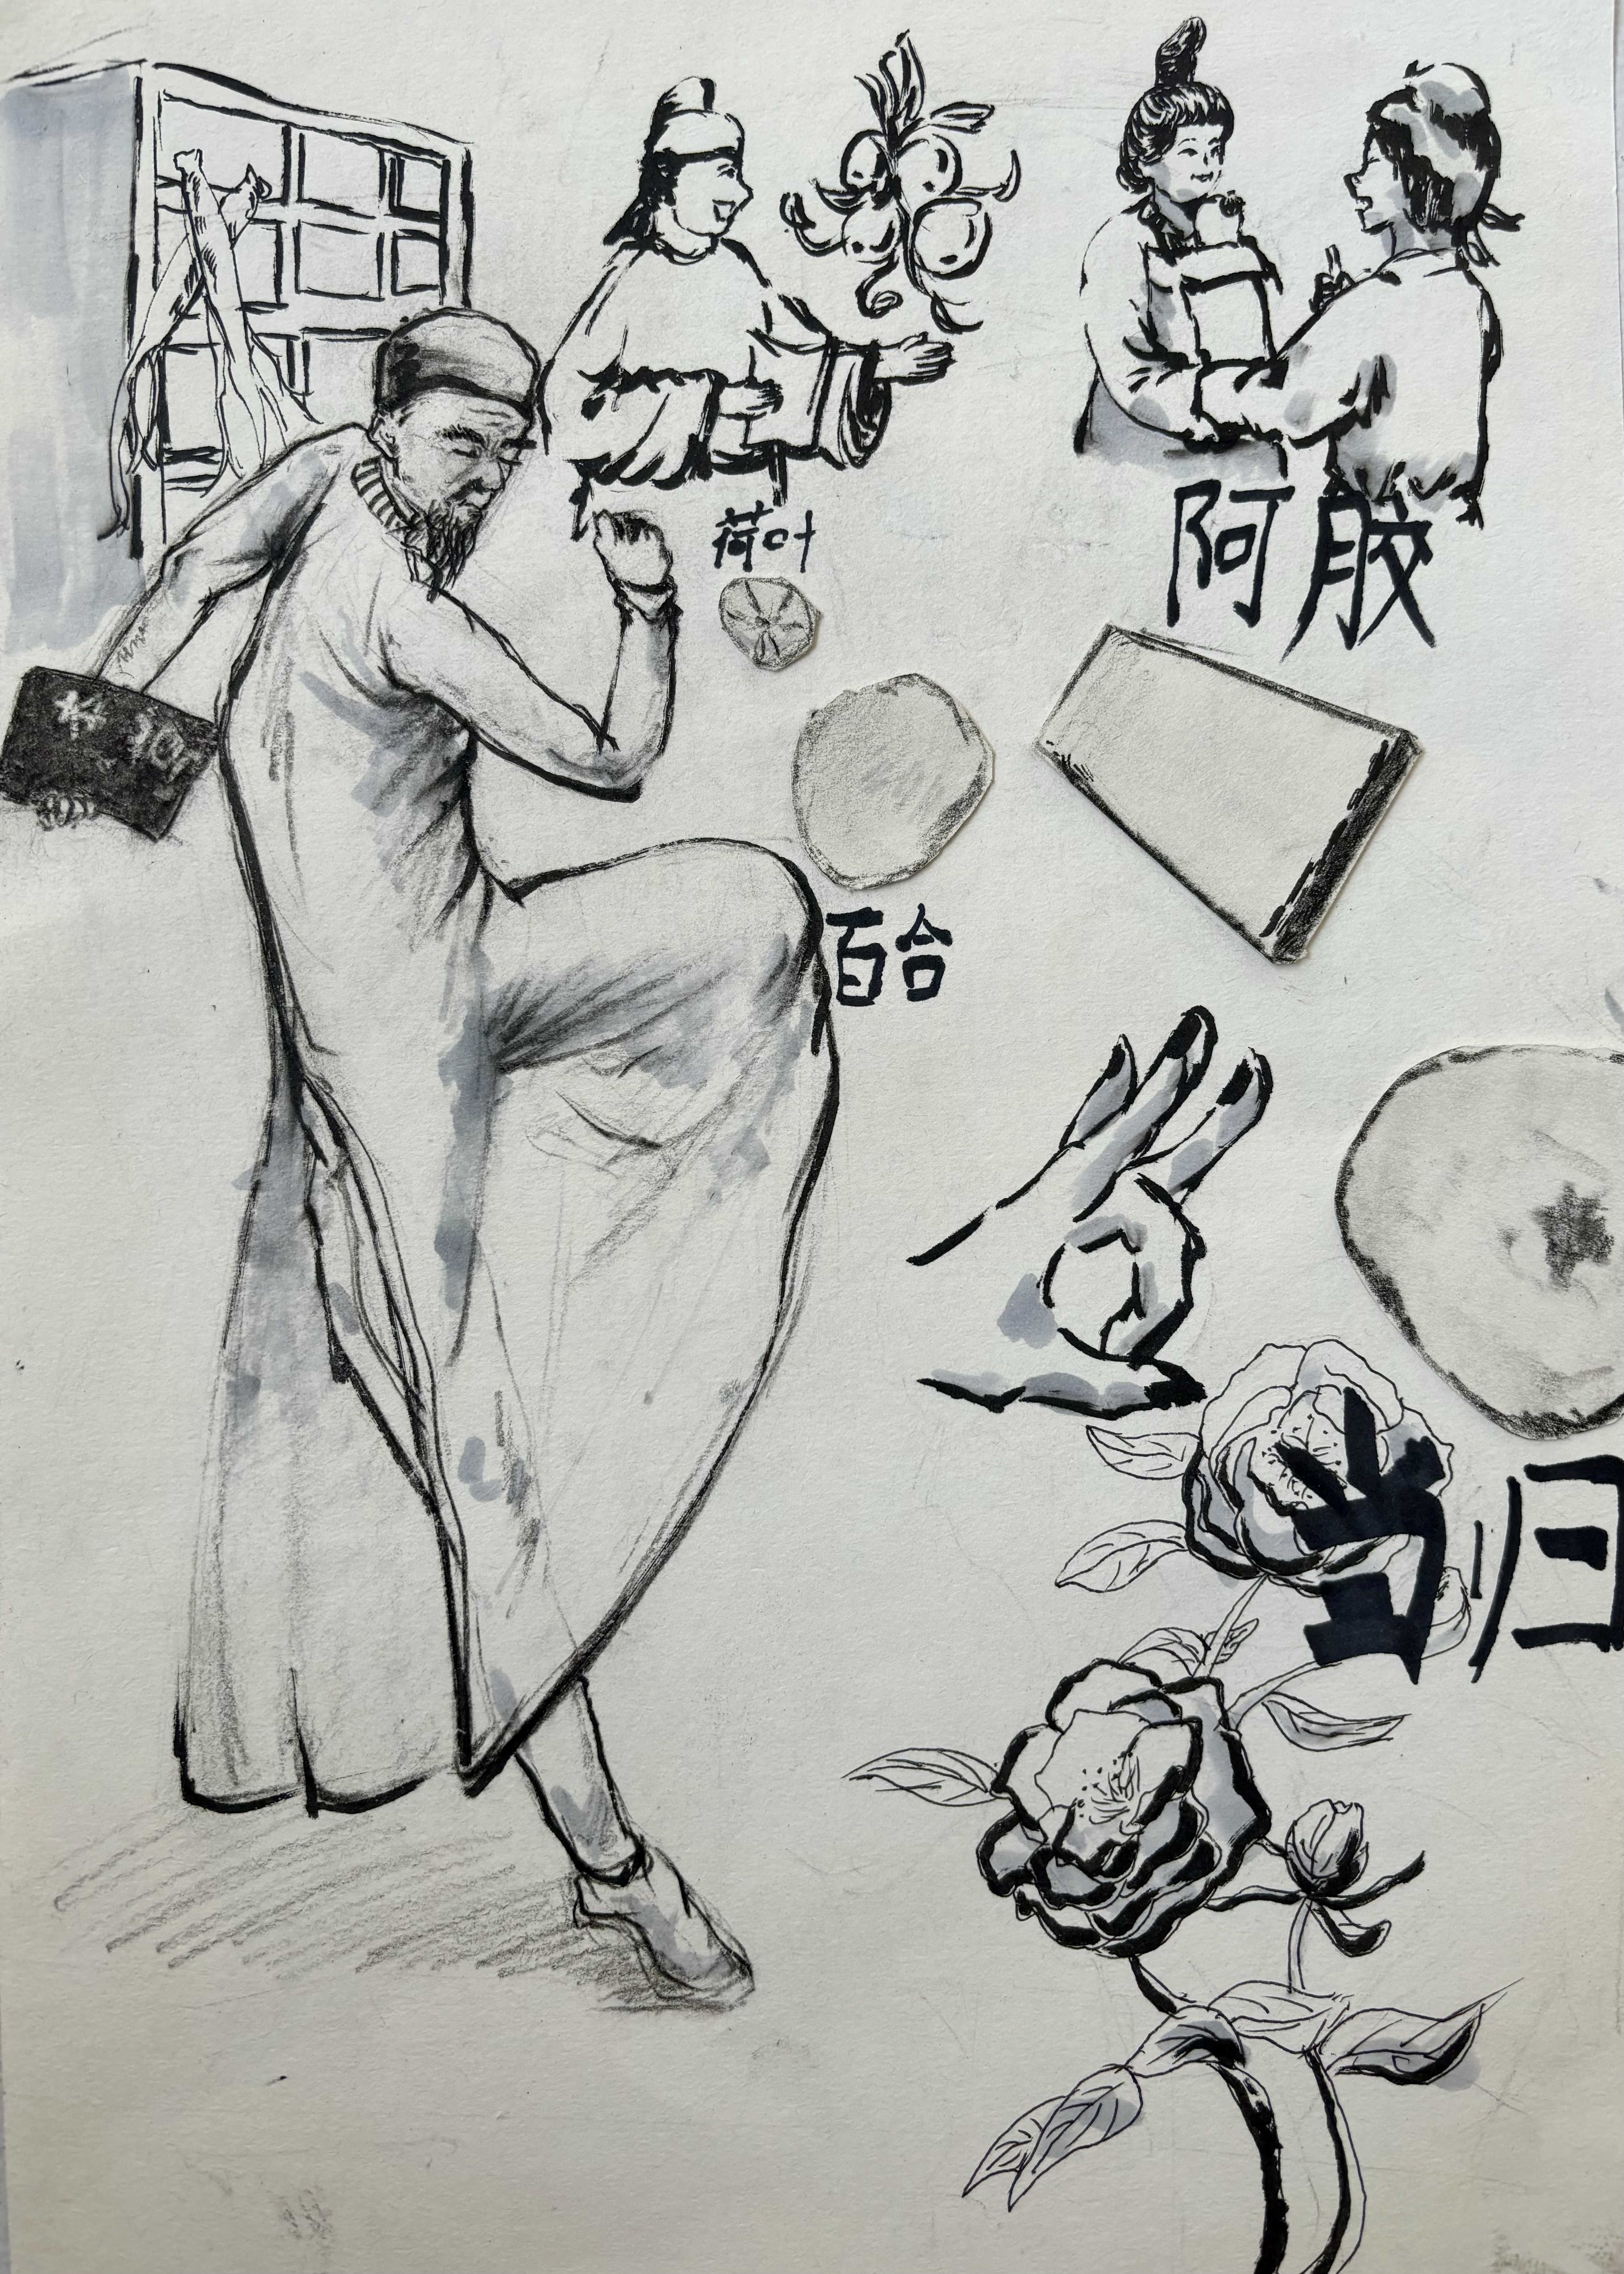 荷叶
阿胶
百合
当归